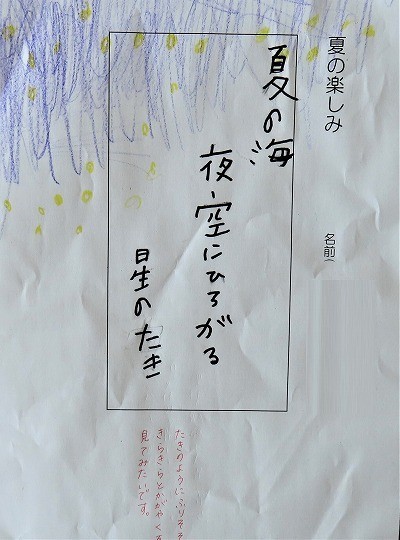 夏の楽しみ
名前(
夏の海
夜空にひろがる
星のたき
たきのようにふりそそ
きらきらとかがやく
見てみたいです。